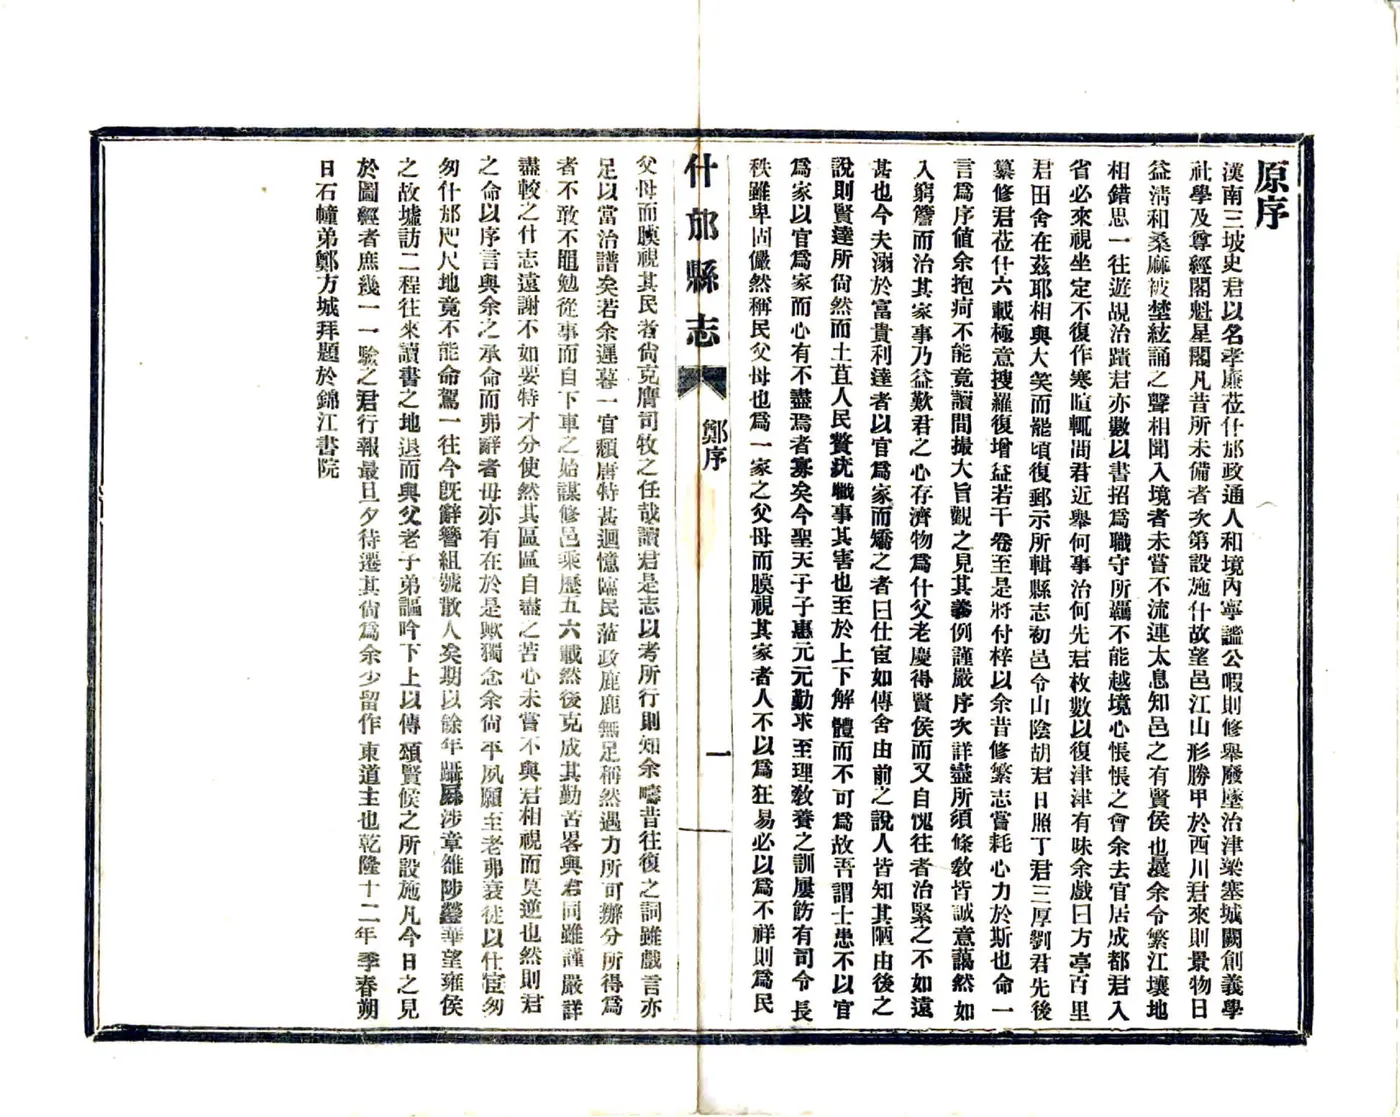 原序
漢南三坡史君以名孝廉莅什邡政通人和境內寧謐公暇則修舉廢墜治津梁塞城闕創義學
社學及尊經閣魁星閣凡昔所未備者次第設施什故望邑江山形勝甲於西川君來則景物日
益淸和桑麻被埜絃誦之聲相聞入境者未嘗不流連太息知邑之有賢侯也曩余令繁江壤地
相錯思一往遊覘治蹟君亦數以書招爲職守所羈不能越境心悵悵之會余去官居成都君入
省必來視坐定不復作寒暄輒問君近舉何事治何先君枚數以復津津有味余戲曰方亭百里
君田舍在茲耶相與大笑而罷頃復郵示所輯縣志初邑令山陰胡君日照丁君三厚劉君先後
纂修君莅什六載極意搜羅復增益若干卷至是將付梓以余昔修繁志嘗耗心力於斯也命一
言爲序値余抱疴不能竟讀間撮大旨觀之見其義例謹嚴序次詳盡所須條敎皆誠意藹然如
入窮簷而治其家事乃益歎君之心存濟物爲什父老慶得賢侯而又自愧往者治繁之不如遠
甚也今夫溺於富貴利達者以官爲家而矯之者曰仕宦如傳舍由前之說人皆知其陋由後之
說則賢達所尙然而土苴人民贅疣職事其害也至於上下解體而不可爲故吾謂士患不以官
爲家以官爲家而心有不盡焉者寡矣今聖天子子惠元元勤求至理敎養之訓屢飭有司令長
秩雖卑固儼然稱民父母也爲一家之父母而膜視其家者人不以爲狂易必以爲不祥則爲民
什邡縣志
鄭序
一
父母而膜視其民者尙克膺司牧之任哉讀君是志以考所行則知余疇昔往復之詞雖戲言亦
足以當治譜矣若余遲暮一官頹唐特甚迴憶臨民蒞政鹿鹿無足稱然遇力所可辦分所得爲
者不敢不黽勉從事而自下車之始謀修邑乘歷五六載然後克成其勤苦畧與君同雖謹嚴詳
盡較之什志遠謝不如要特才分使然其區區自盡之苦心未嘗不與君相視而莫逆也然則君
之命以序言與余之承命而弗辭者毋亦有在於是歟獨念余尙平夙願至老弗衰徒以仕宦匆
匆什邡咫尺地竟不能命駕一往今旣辭簪組號散人矣期以餘年躡屩涉章雒陟鎣華望雍侯
之故墟訪二程往來讀書之地退而與父老子弟謳吟下上以傳頌賢候之所設施凡今日之見
於圖經者庶幾一一驗之君行報最旦夕待遷其尙爲余少留作東道主也乾隆十二年季春朔
日石幢弟鄭方城拜題於錦江書院